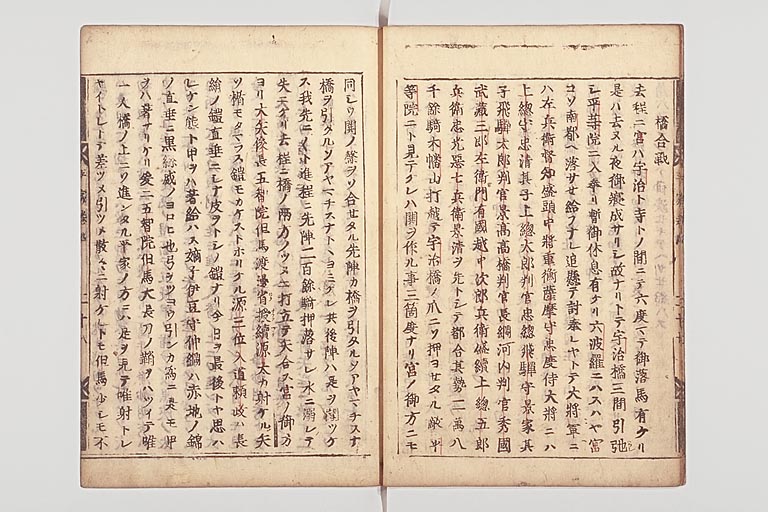 橋合戦
去程ニ宮ハ宇治ト寺トノ間ニテ六度マテ御落馬有ケリ
是ハ去ヌル夜御寝成サリシ故ナリトテ宇治橋三間引弛
シ平等院ニ入奉リ暫御休息有ケリ六波羅ニハスハヤ宮
コソ南都ヘ落サセ給フナレ追懸テ討奉レヤトテ大将軍ニ
ハ左兵衛督知盛頭中将重衡薩摩守忠度侍大将ニハ
上総守忠清其子上総太郎判官忠綱飛騨守景家其
子飛騨太郎判官景高高橋判官長綱河内判官秀國
武蔵三郎左衛門有國越中次郎兵衛盛續上総五郎
兵衛忠光悪七兵衛景清ヲ先トシテ都合其勢二萬八
千餘騎木幡山打越テ宇治橋ノ爪ニソ押ヨセタル敵平
等院ニト見テケレハ鬨ヲ作ル事三箇度ナリ宮ノ御方ニモ
同シク鬨ノ聲ヲソ合セタル先陣カ橋ヲ引タルソアヤマチスナ
橋ヲ引タルソアヤマチスナトトヨミケレ共後陣ハ是ヲ聞ツケ
ス我先ニノト進程ニ先陣二百餘騎押落サレ水ニ溺レテ
失ニケリ去程ニ橋ノ両方ノツメニ打立テ矢合ス宮ノ御方
ヨリ大矢俊長五智院但馬渡邊省授續源太カ射ケル矢
ソ楯モタマラス鎧モカケストホリケル源三位入道頼政ハ長
絹ノ鎧直垂ニシナ皮ヲトシノ鎧ナリ今日ヲ最後トヤ思ハ
レケン態ト甲ヲハ著給ハス嫡子伊豆守仲綱ハ赤地ノ錦
ノ直垂ニ黒絲威ノヨロヒ也弓ヲツヨウ引ンカ為ニ是モ甲
ヲハ著サリケリ爰ニ五智院但馬大長刀ノ鞘ヲハツイテ唯
一人橋ノ上ニソ進ンタル平家ノ方ニハ是ヲ見テ唯射トレ
ヤイトレトテ差ツメ引ツメ散々ニ射ケレトモ但馬少シモ不